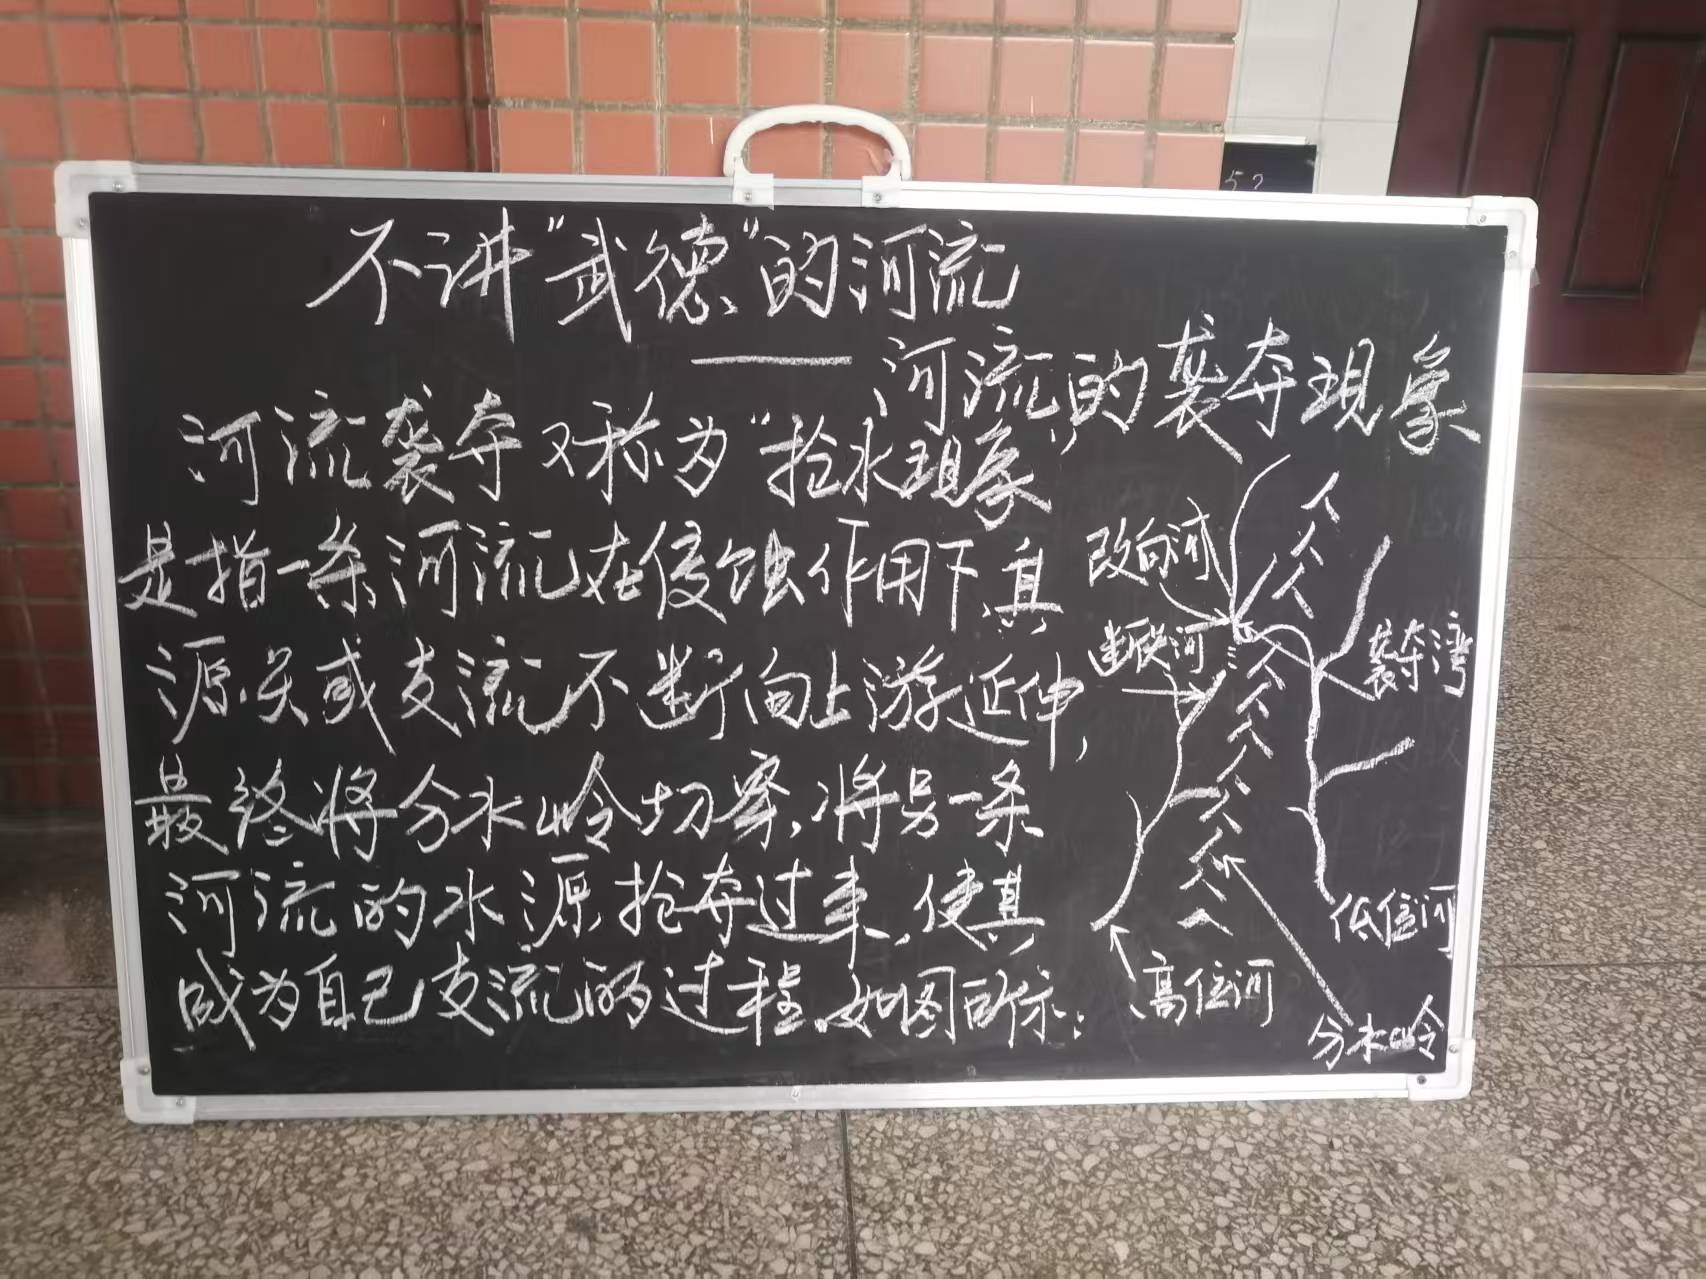 不讲“武德”的河流
——河流的袭夺现象
河流袭夺又称为“抢水现象”,
是指一条河流在侵蚀作用下,其
源头或支流不断向上游延伸,
最终将分水岭切穿,将另一条
河流的水源抢夺过来,使其
成为自己支流的过程。如图所示:
改向河
断头河
袭夺湾
低位河
高位河
分水岭
52